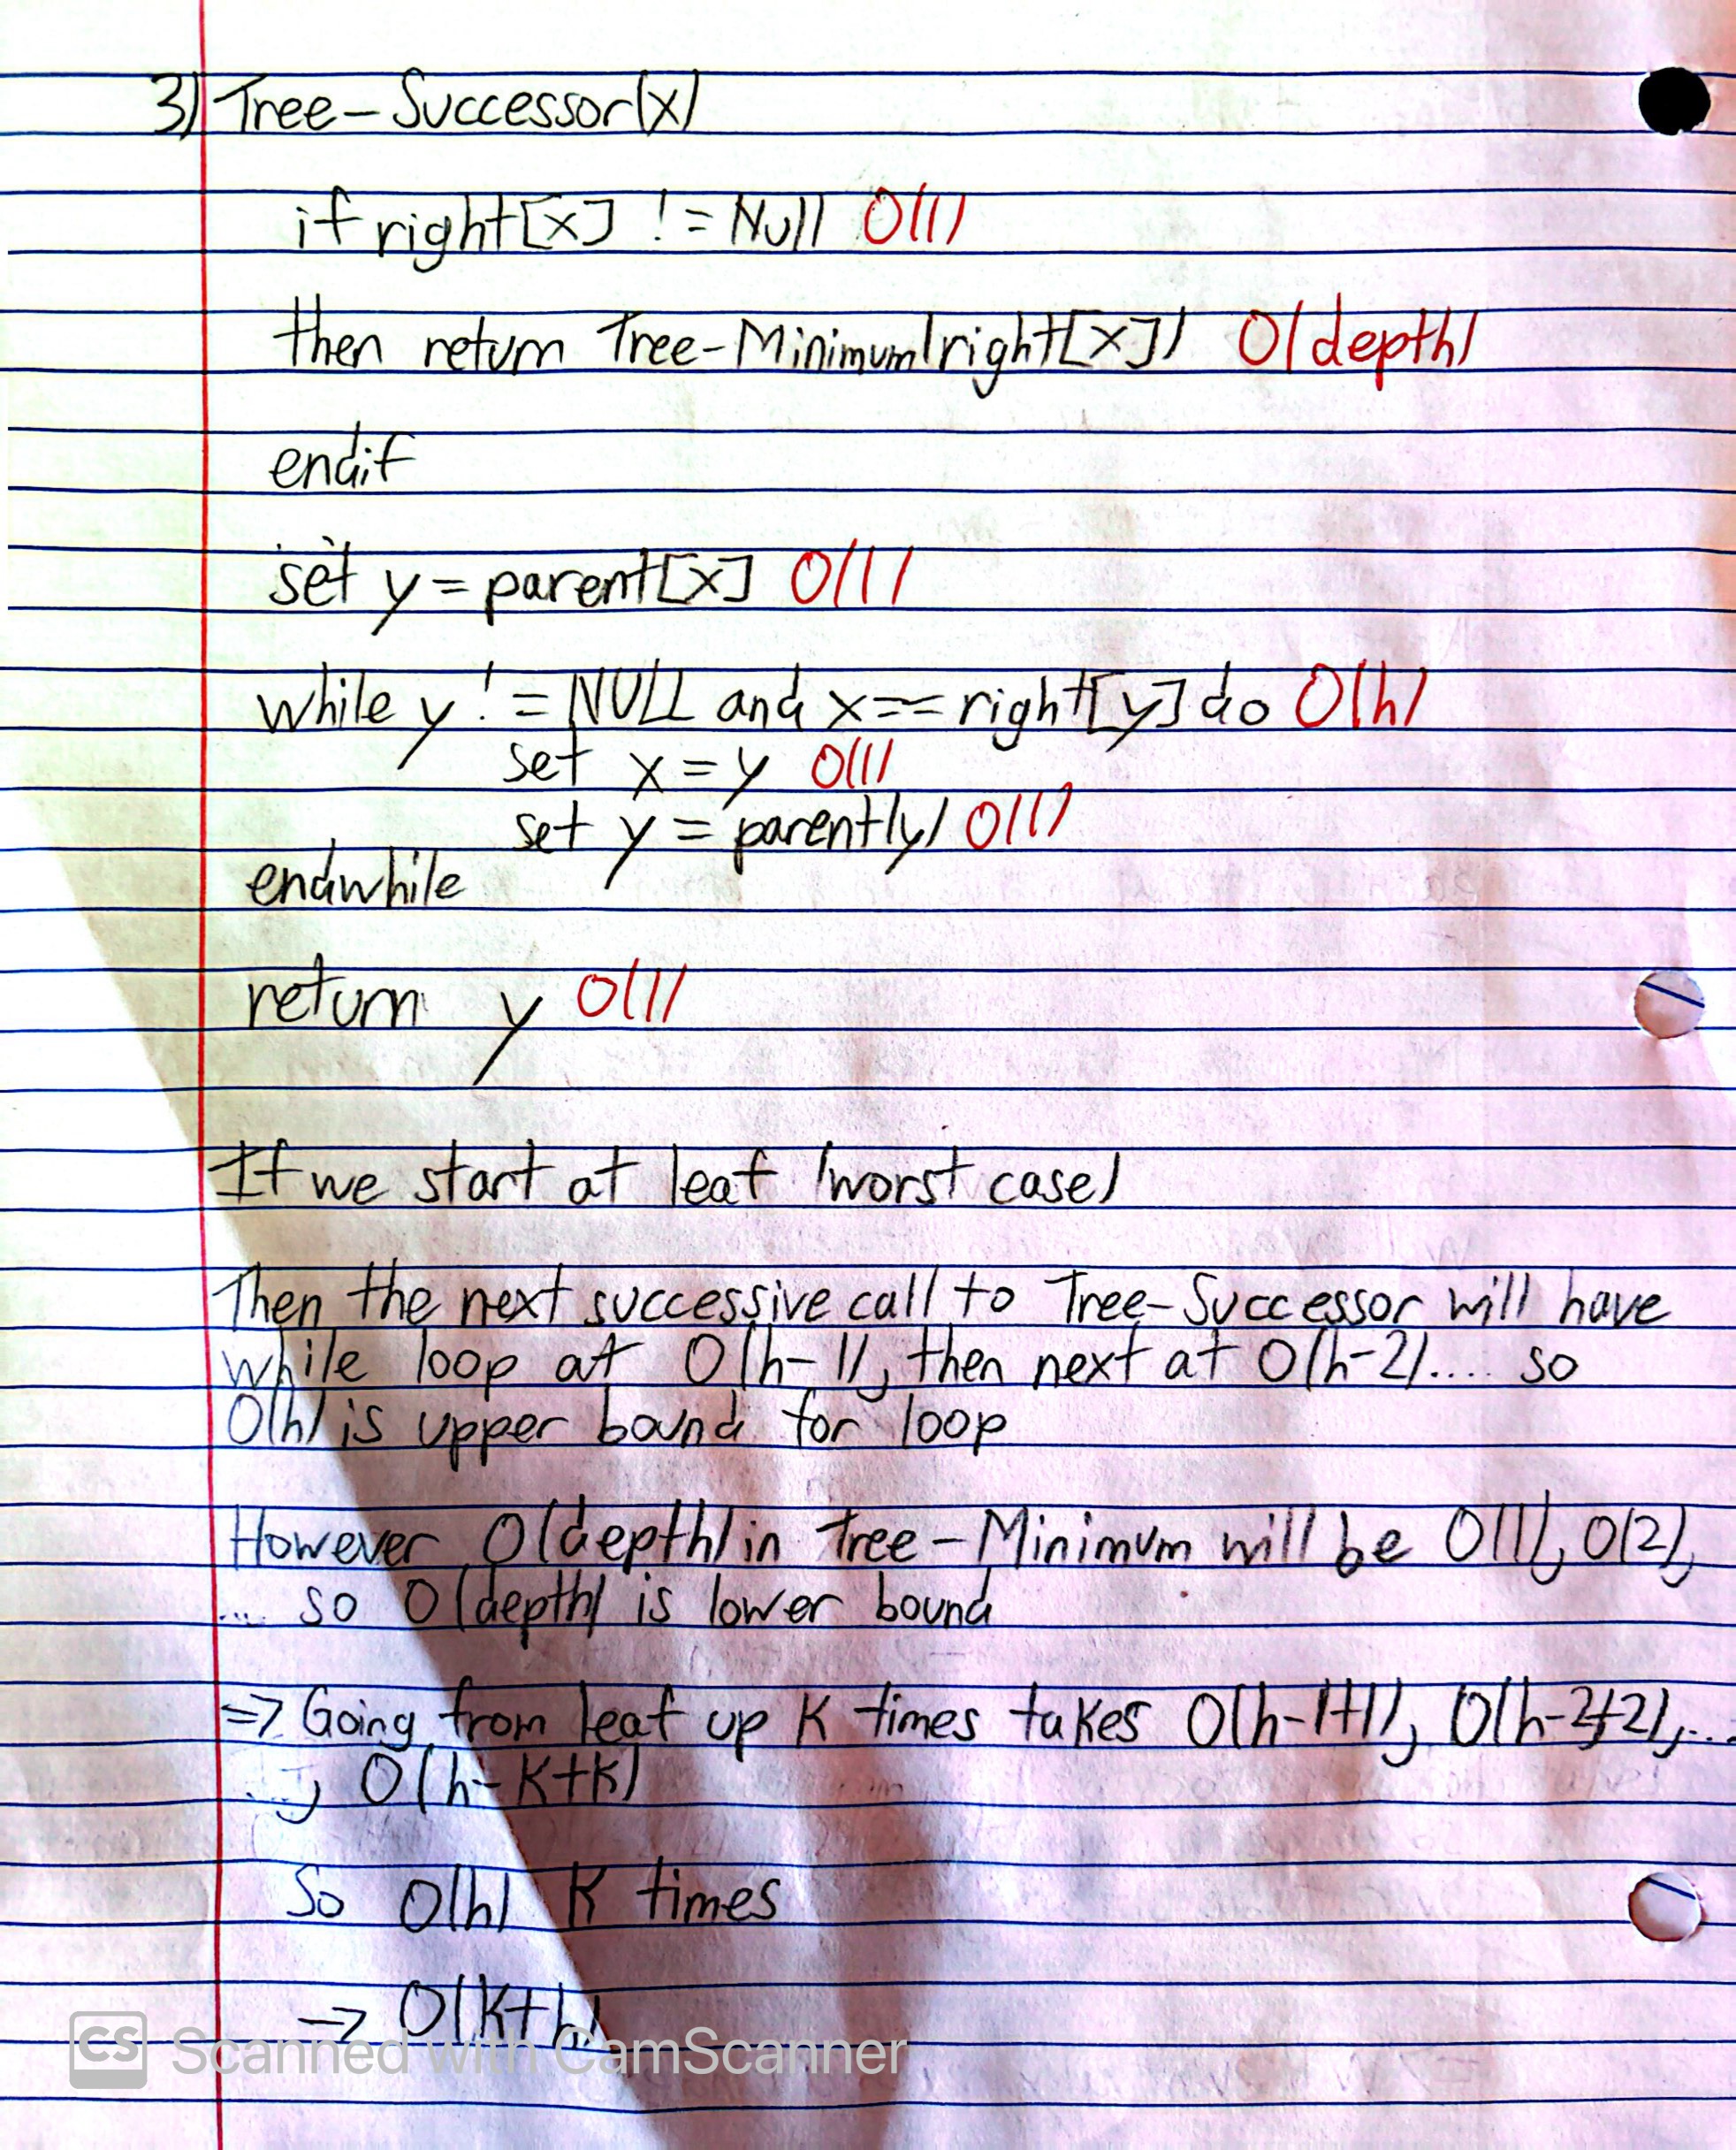 3) Tree-Successor(x)
if right[x] != Null O(1)
then return Tree-Minimum(right[x]) O(depth)
endif
set y = parent[x] O(1)
while y != NULL and x == right[y] do O(h)
set x = y O(1)
set y = parent(y) O(1)
endwhile
return y O(1)
If we start at leaf (worst case)
Then the next successive call to Tree-Successor will have
while loop at O(h-1), then next at O(h-2).... so
O(h) is upper bound for loop
However O(depth) in Tree-Minimum will be O(1), O(2),
... so O(depth) is lower bound
=> Going from leaf up K times takes O(h-1+1), O(h-2+2),...
..., O(h-K+K)
So O(h) K times
→ O(K+h)
CS Scanned with CamScanner